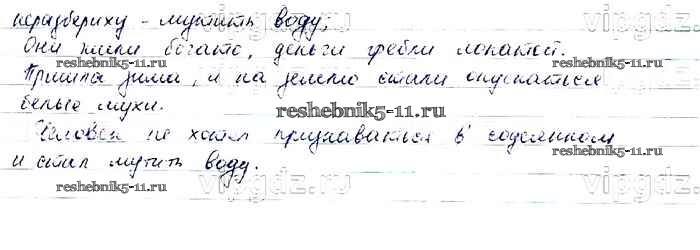 неразбериху - мутить воду;
Они жили богато, деньги гребли лопатой.
Пришла зима, и на землю стали опускаться
белые мухи.
Человек не хотел признаваться в содеянном
и стал мутить воду.
reshebnik5-11.ru
reshebnik5-11.ru
reshebnik5-11.ru
reshebnik5-11.ru
reshebnik5-11.ru
vipgdz.ru
vipgdz.ru
vipgdz.ru